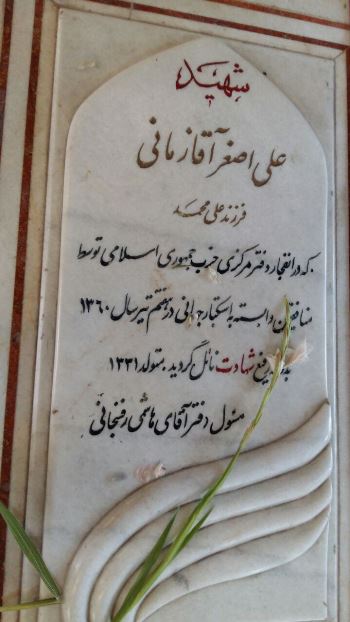 شهید
علی اصغر آقازمانی
فرزند علی محمد
که در انفجار دفتر مرکزی حزب جمهوری اسلامی توسط
منافقین وابسته به استکبار جهانی در هفتم تیر سال ۱۳۶۰
رفیع شهادت نائل گردید متولد ۱۳۳۱
مسئول دفتر آقای هاشمی رفسنجانی